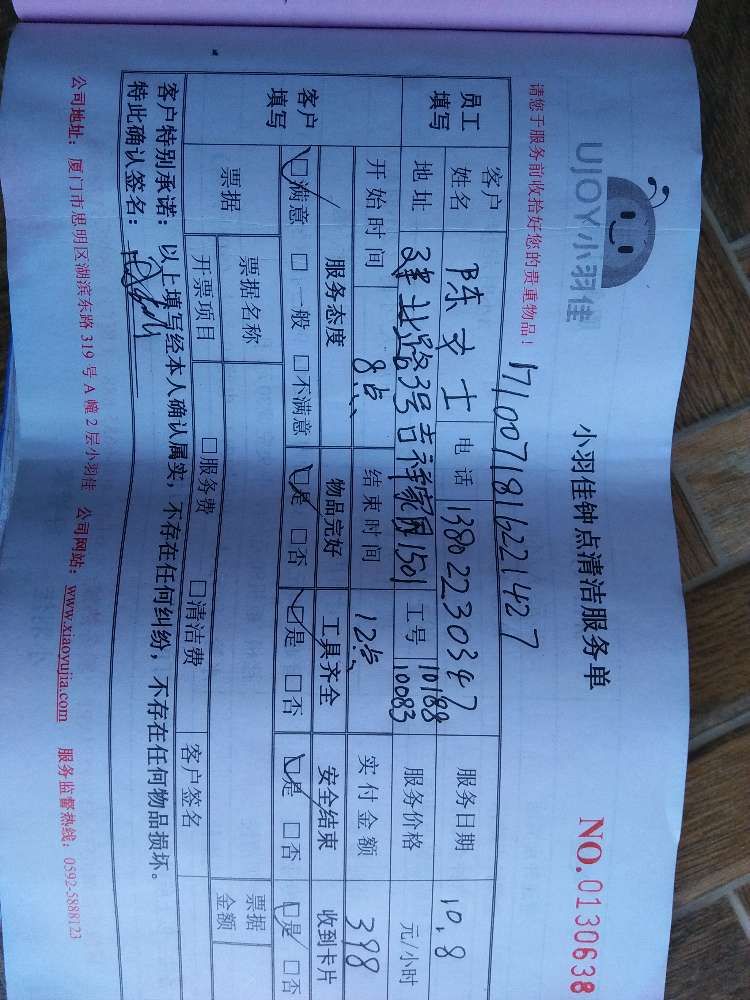 UJOY小羽佳
小羽佳钟点清洁服务单
NO.0130638
请您于服务前收拾好您的贵重物品！
1710071816221427
员工填写 客户姓名 陈女士 电话 13802230347 服务日期 10.8
地址 北路3号吉祥家园1501 工号 10188 10083 服务价格 元/小时
客户填写 开始时间 8点 结束时间 12点 实付金额 398
服务态度 物品完好 工具齐全 安全结束 收到卡片
☑满意 □一般 □不满意 ☑是 □否 ☑是 □否 ☑是 □否 ☑是 □否
票据 票据名称 票据金额
开票项目 □服务费 □清洁费 客户签名
客户特别承诺：以上填写经本人确认属实，不存在任何纠纷，不存在任何物品损坏。
特此确认签名：
公司地址：厦门市思明区湖滨东路319号A幢2层小羽佳 公司网站：www.xiaoyujia.com 服务监督热线：0592-5888123